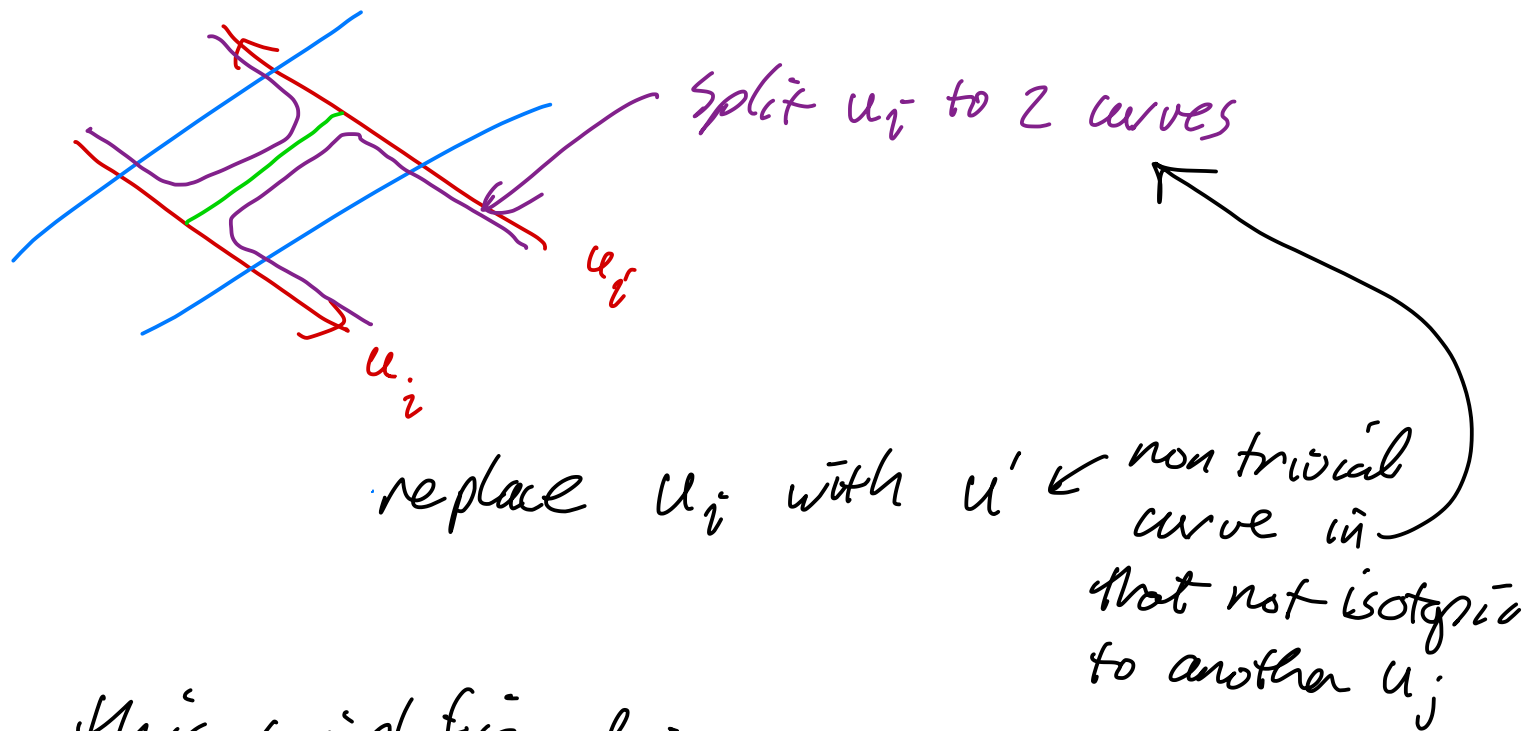 split u_i to 2 curves
u_i
u_i
replace u_i with u' non trivial
curve in
that not isotopic
to another u_j